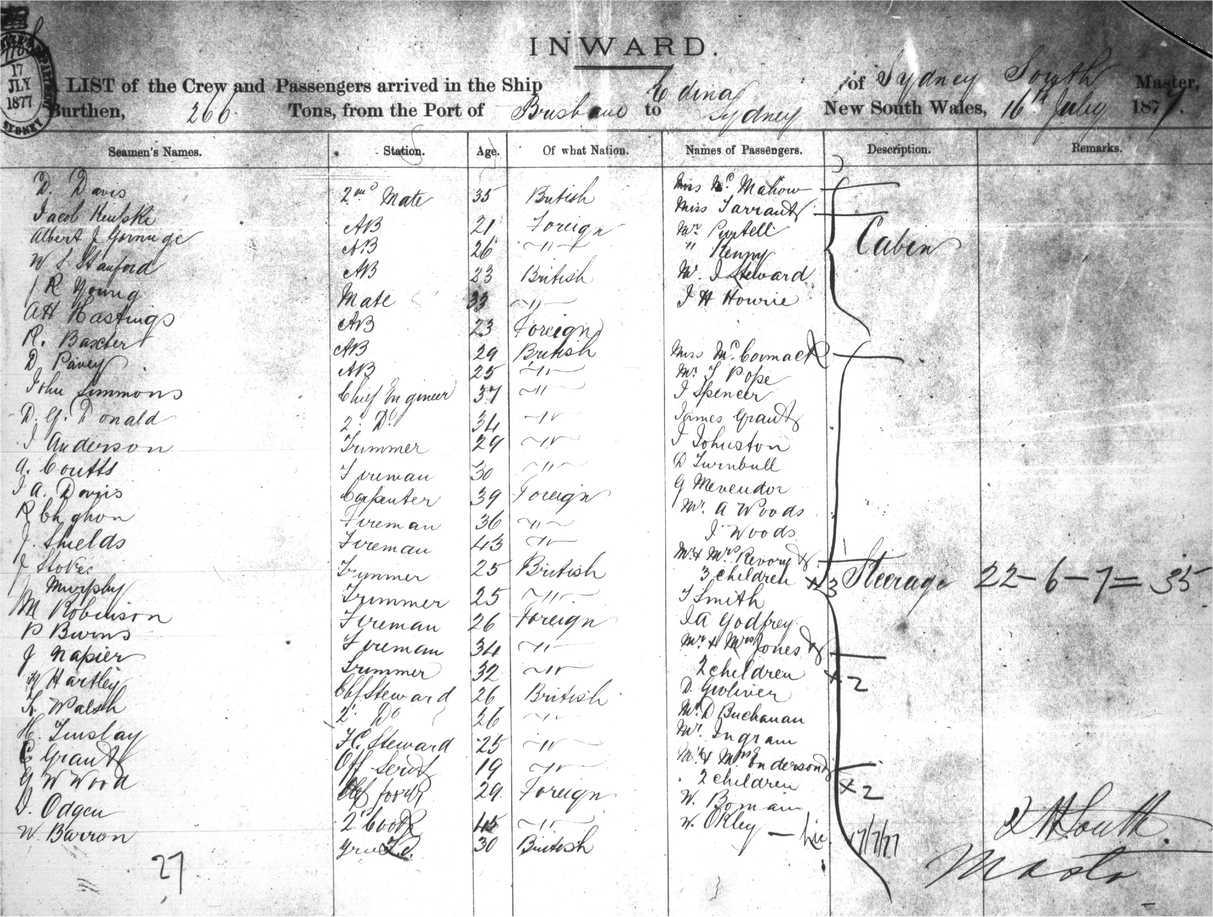 INWARD.
17
JLY
1877
SYDNEY
LIST of the Crew and Passengers arrived in the Ship Edina of Sydney South Master,
Burthen, 266 Tons, from the Port of Brisbane to Sydney New South Wales, 16th July 1877.
Seamen's Names. Station. Age. Of what Nation. Names of Passengers. Description. Remarks.
D. Davis 2nd Mate 35 British Miss Mc Mahow
Jacob AB 21 Foreign Miss Tarrant
Albert J AB 26 " Mr Purtell
W. S. Stanford AB 23 British " Kenny Cabin
J R Young Mate 33 " Mr J Steward
AH Hastings AB 23 Foreign J H Howrie
R. Baxter AB 29 British Miss McCormack
D Pavey AB 25 " Mr T Pope
John Simmons Chief Engineer 37 " J Spencer
D. G. Donald 2. Do 34 " James Grant
J Anderson Trimmer 29 " J Johnston
A. Coutts Fireman 30 " D Turnbull
J A. Davis Carpenter 39 Foreign G
R Fireman 36 " Mr A Woods
J. Shields Fireman 43 " J Woods
J Stokes Trimmer 25 British Mr & Mrs
3 children x 3 Steerage 22-6-7=35
J Murphy Trimmer 25 " T Smith
M Robinson Fireman 26 Foreign J A Godfrey
P Burns Fireman 34 " Mr & Mrs Jones
J Napier Trimmer 32 " 2 children x 2
H Hartley Chf Steward 26 British D. Goliver
K. Walsh 2. Do 26 " Mr D Buchanan
H. Tinslay F.C. Steward 25 " Mr Ingram
C Grant Off Servt 19 " Mr & Mrs Enderson
G W Wood 29 Foreign 2 children x 2
J. Odgen 2 Cook 45 " W. Bomain
W. Barron 30 British W. Okley
17/7/77
27
J H South
Master